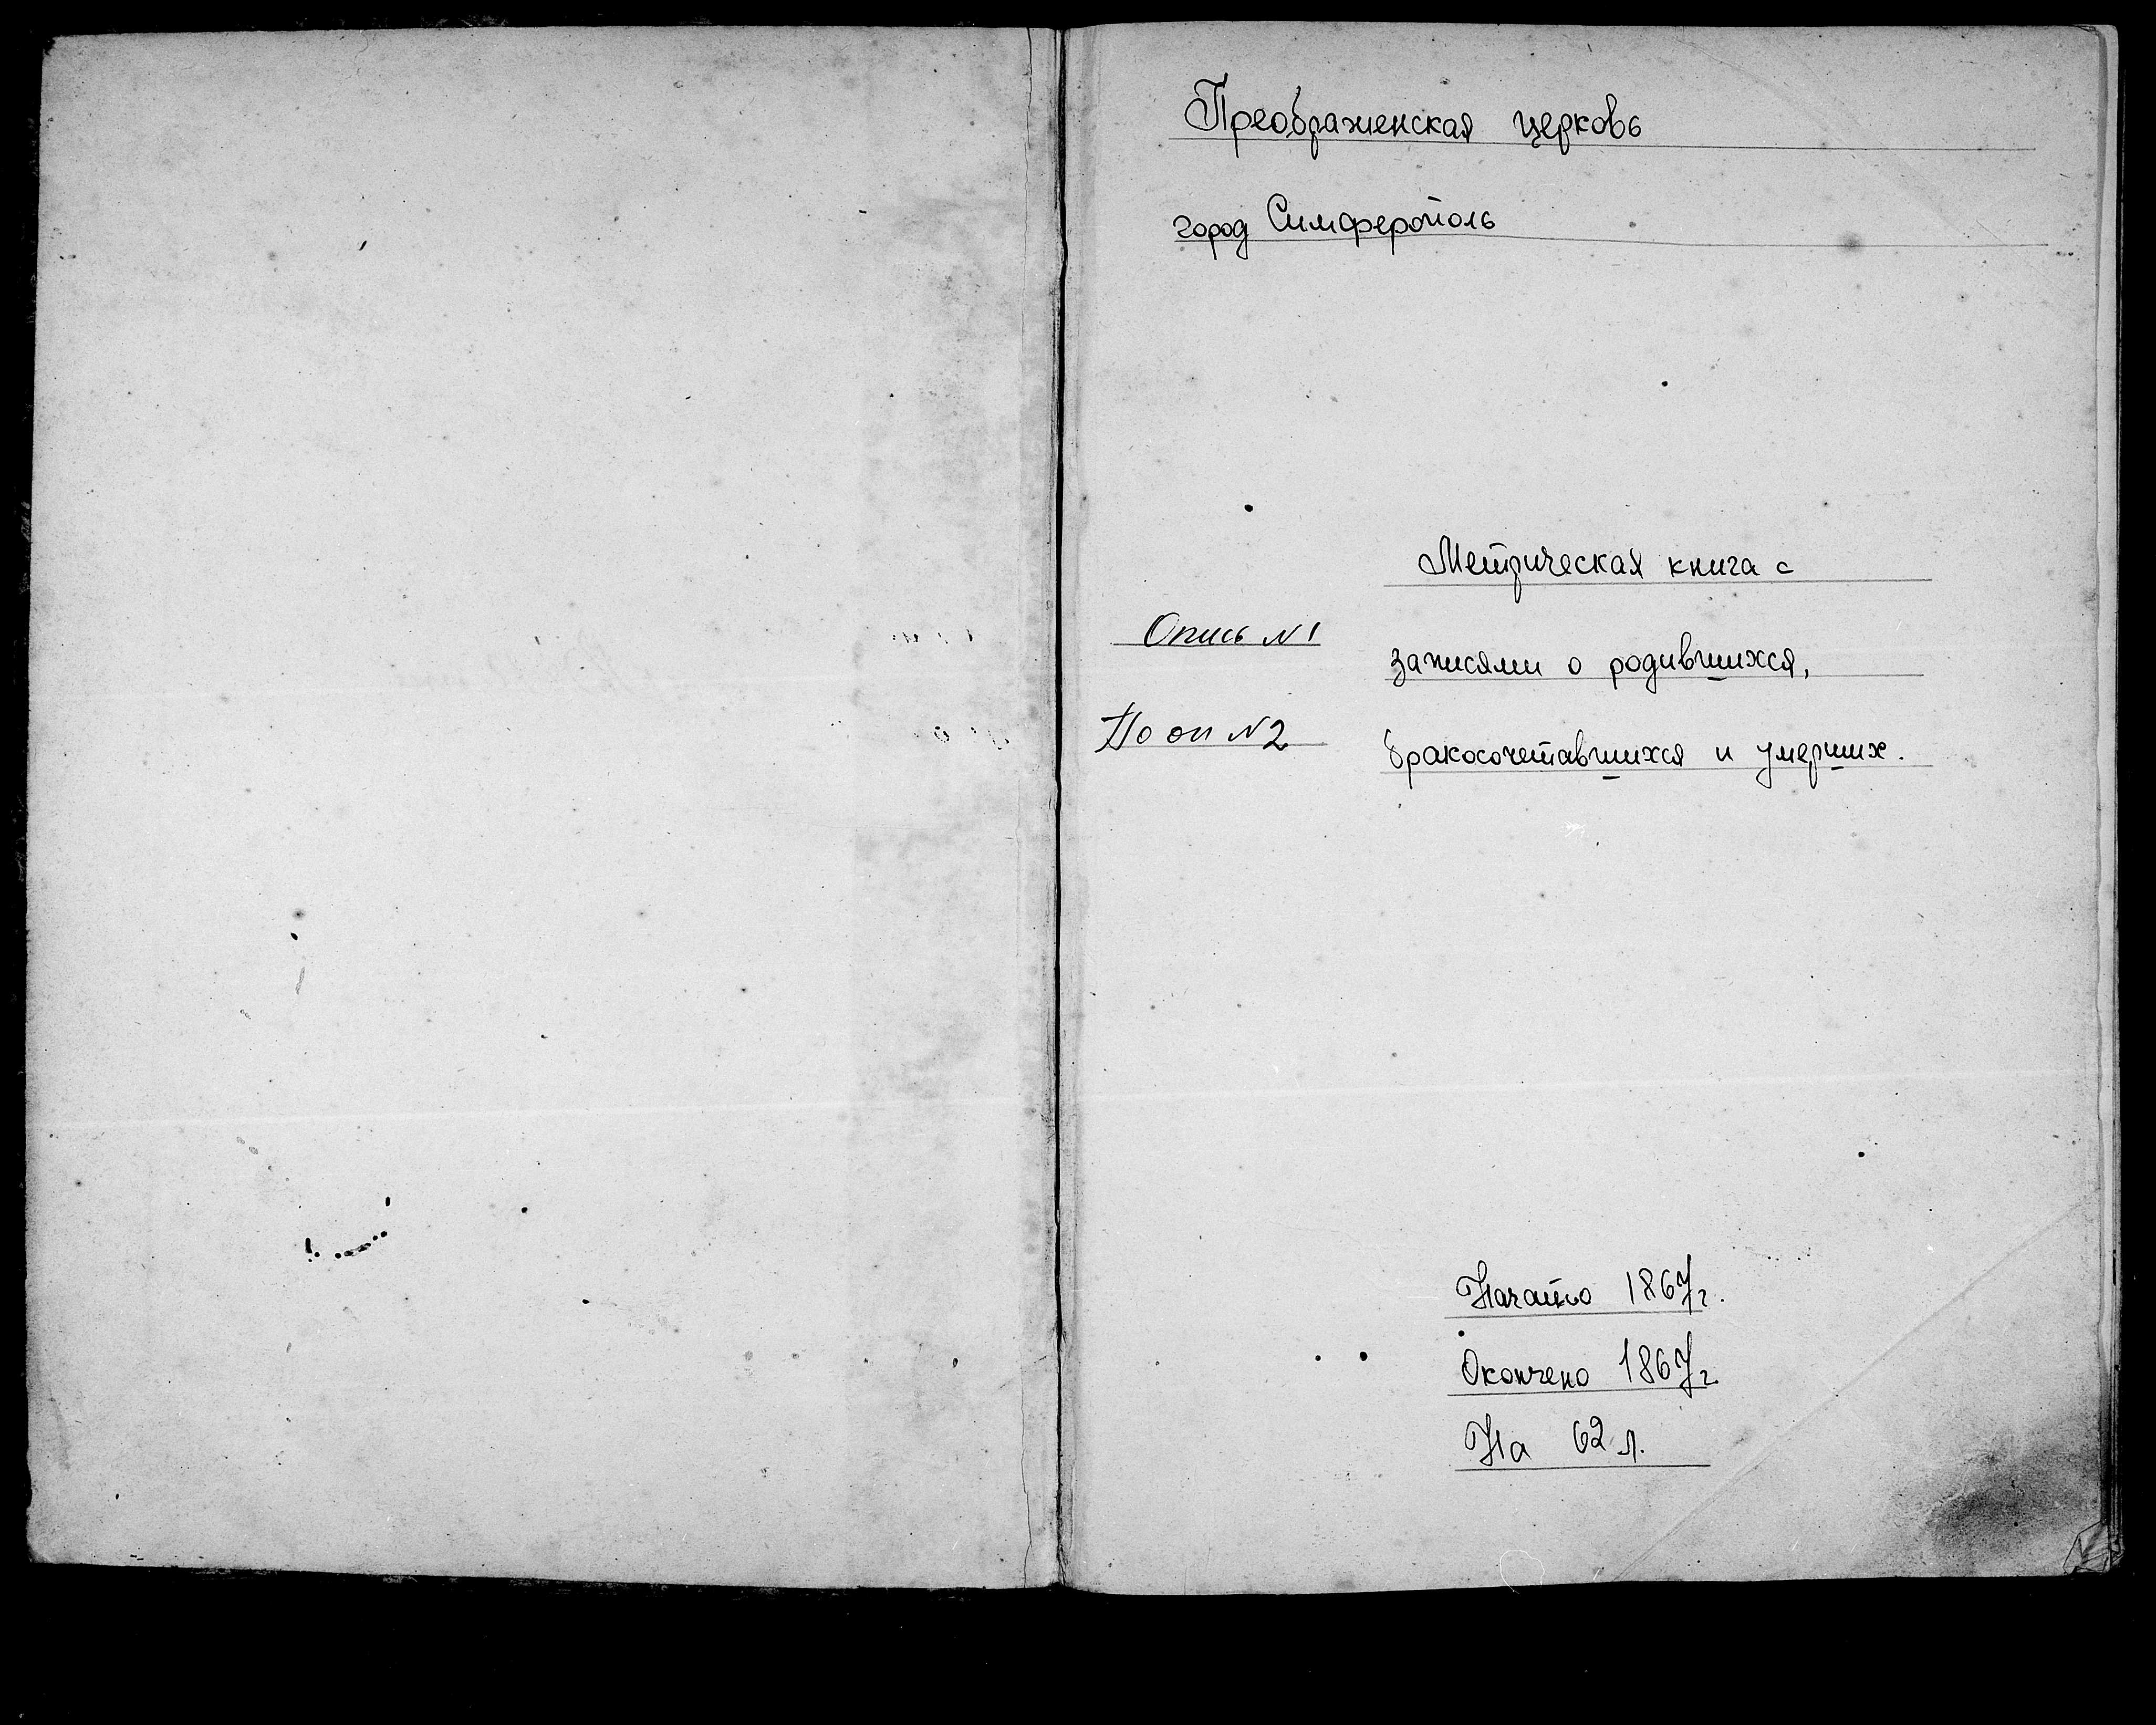 Преображенская церковь
город Симферополь
Метрическая книга с
Опись N1
записями о родившихся,
По оп N2
бракосочетавшихся и умерших.
Начато 1867г.
Окончено 1867г.
На 62 л.